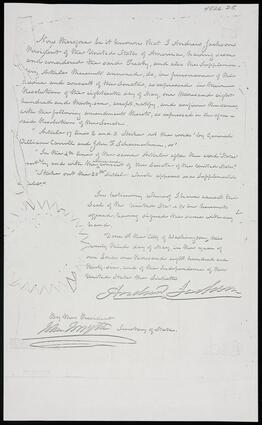 Now therefore be it known that I Andrew Jackson
President of the United States of America, having seen
and considered the said Treaty, and also the Supplemen
tary Articles thereunto annexed, do, in pursuance of the
advice and consent of the Senate, as expressed in their
Resolution of the eighteenth day of May, one thousand eight
hundred and thirty-six, accept, ratify, and confirm the same,
with the following amendments thereto, as expressed in the afore-
said Resolution of the Senate.
Article lines 2 and 3 Strike out the words "by General
William Carroll and John F. Schermerhorn," or"
In the
"Strike out the 20th article which appears as a Supplemental
article."
In testimony whereof I have caused the
Seal of the United States to be hereunto
affixed, having signed the same with my
hand.
Done at the City of Washington, this
twenty third day of May, in the year of
our Lord one thousand eight hundred and
thirty-six, and of the Independence of the
United States the Sixtieth.
Andrew Jackson
By the President
John Forsyth Secretary of State.